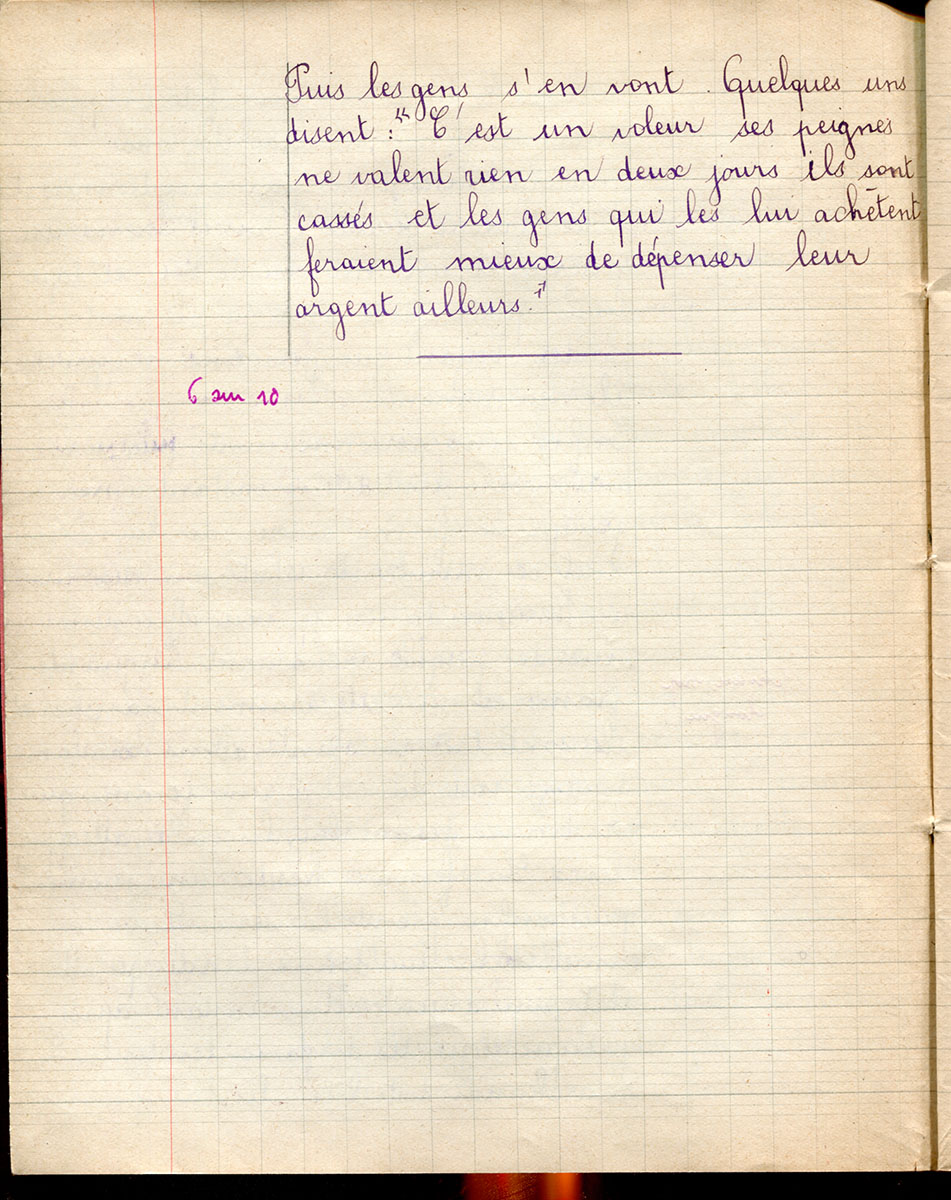 Puis les gens s'en vont. Quelques uns
disent : " C'est un voleur ses peignes
ne valent rien en deux jours ils sont
cassés et les gens qui les lui achètent
feraient mieux de dépenser leur
argent ailleurs. "
6 sur 10